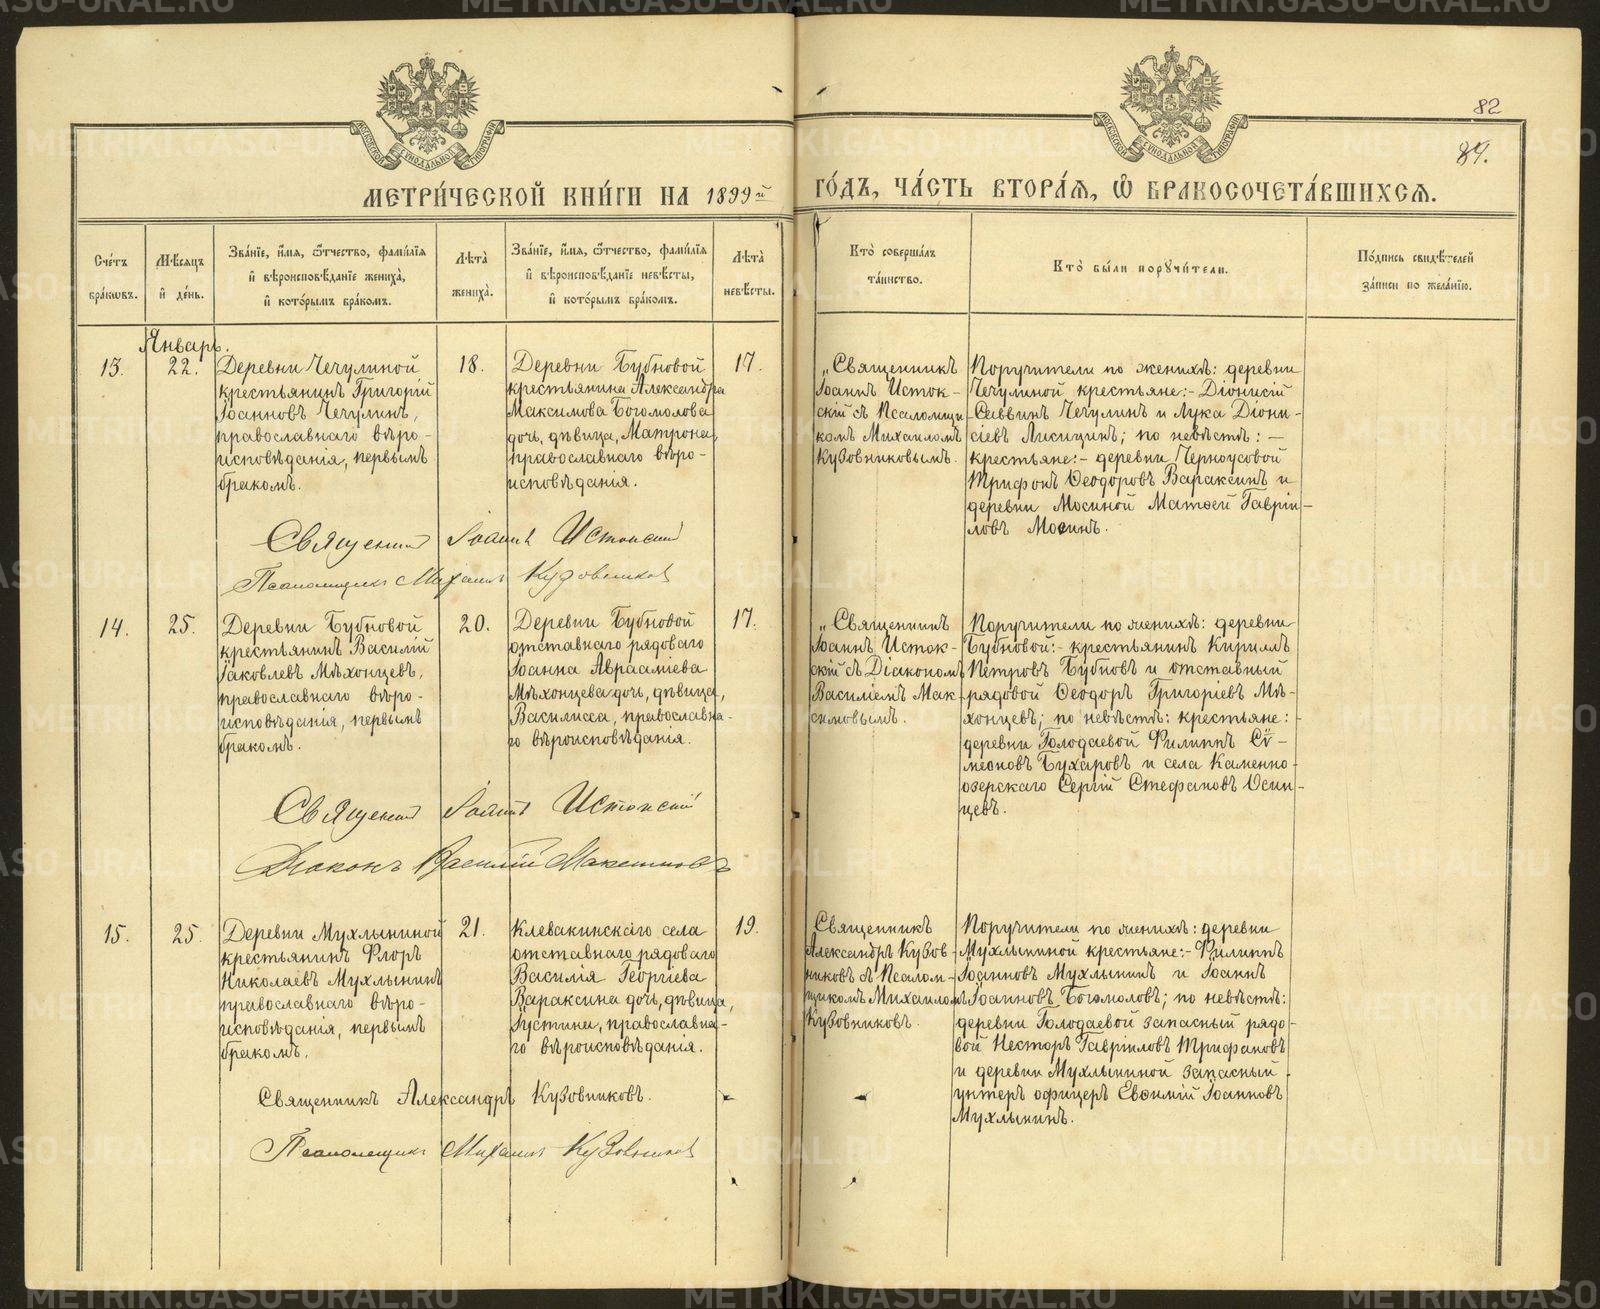 82
84.
МЕТРИ́ЧЕСКОЙ КНИ́ГИ НА 1899й ГО́ДЪ, ЧА́СТЬ ВТОРА́Я, Ѿ БРАКОСОЧЕТА́ВШИХСЯ.
Сче́тъ
бра́кѡвъ.
Мѣ́сяцъ
и҆ де́нь.
Зва́нїе, и҆́мя, ѻ҆́тчество, фами́лїя
и҆ вѣроисповѣ́данїе жениха̀,
и҆ кото́рымъ бра́комъ.
Лѣ́та
жениха̀.
Зва́нїе, и҆́мя, ѻ҆́тчество, фами́лїя
и҆ вѣроисповѣ́данїе невѣ́сты,
и҆ кото́рымъ бра́комъ.
Лѣ́та
невѣ́сты.
Кто̀ соверша́лъ
та́инство.
Кто̀ бы́ли поручи́тели.
По́дпись свидѣ́телей
за́писи по жела́нїю.
Январь.
13.
22.
Деревни Чечулиной
крестьянинъ Григорій
Іоанновъ Чечулинъ,
православнаго вѣро-
исповѣданія, первымъ
бракомъ.
18.
Деревни Бубновой
крестьянина Александра
Максимова Богомолова
дочь, дѣвица, Матрона,
православнаго вѣро-
исповѣданія.
17.
„Священникъ
Іоаннъ Исток-
скій съ Псаломщи-
комъ Михаиломъ
Кузовниковымъ.
Поручители по женихѣ: деревни
Чечулиной крестьяне:- Діонисій
Саввинъ Чечулинъ и Лука Діони-
сіевъ Лисицинъ; по невѣстѣ: -
крестьяне:- деревни Черноусовой
Трифонъ Ѳеодоровъ Вараксинъ и
деревни Мосиной Матѳей Гавріи-
ловъ Мосинъ.
Священникъ Іоаннъ Истокскій
Псаломщикъ Михаилъ Кузовниковъ
14.
25.
Деревни Бубновой
крестьянинъ Василій
Іаковлевъ Мѣхонцевъ,
православнаго вѣро-
исповѣданія, первымъ
бракомъ.
20.
Деревни Бубновой
отставнаго рядоваго
Іоанна Авраамiева
Мѣхонцева дочь, дѣвица,
Василисса, православна-
го вѣроисповѣданія.
17.
„Священникъ
Іоаннъ Исток-
скій съ Діакономъ
Василіемъ Мак-
симовымъ.
Поручители по женихѣ: деревни
Бубновой:- крестьянинъ Кириллъ
Петровъ Бубновъ и отставный
рядовой Ѳеодоръ Григоріевъ Мѣ-
хонцевъ; по невѣстѣ: крестьяне:
деревни Голодаевой Филиппъ Сѵ-
меоновъ Бухаровъ и села Каменно-
озерскаго Сергій Стефановъ Осин-
цевъ.
Священникъ Іоаннъ Истокскій
Діаконъ Василій Максимовъ
15.
25.
Деревни Мухлыниной
крестьянинъ Флоръ
Николаевъ Мухлынинъ
православнаго вѣро-
исповѣданія, первымъ
бракомъ.
21.
Клевакинскаго села
отставнаго рядоваго
Василія Георгіева
Вараксина дочь, дѣвица,
Іустина, православна-
го вѣроисповѣданія.
19.
Священникъ
Александръ Кузов-
никовъ съ Псалом-
щикомъ Михаиломъ
Кузовниковъ.
Поручители по женихѣ: деревни
Мухлыниной крестьяне:- Филиппъ
Іоанновъ Мухлынинъ и Іоаннъ
Іоанновъ Богомоловъ; по невѣстѣ:
деревни Голодаевой запасный рядо-
вой Несторъ Гавріиловъ Трифановъ
и деревни Мухлыниной запасный
унтеръ офицеръ Евѳимій Іоанновъ
Мухлынинъ.
Священникъ Александръ Кузовниковъ.
Псаломщикъ Михаилъ Кузовниковъ
METRIKI.GASO-URAL.RU